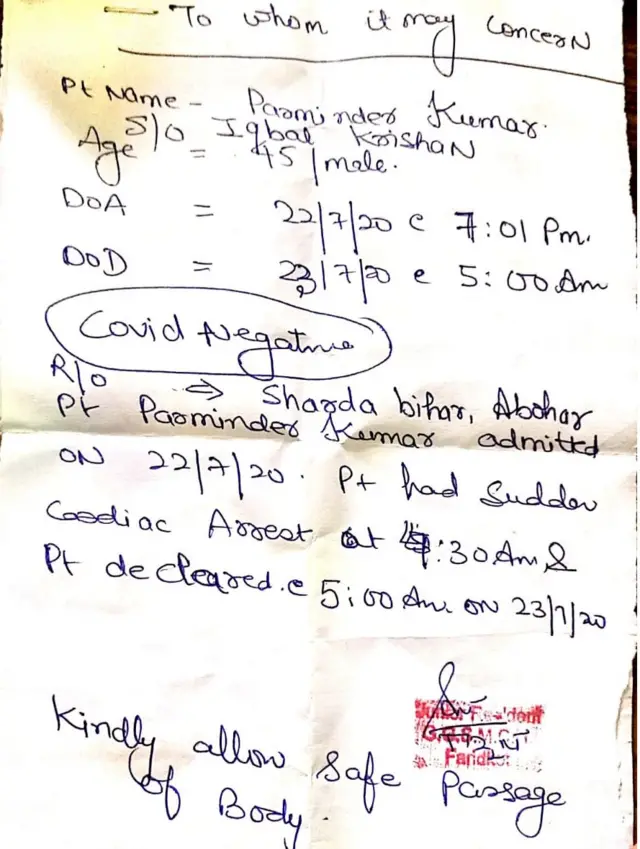 — To whom it may Concern
Pt Name - Parminder Kumar.
S/O Iqbal Krishan
Age = 45 / male.
DOA = 22/7/20 @ 7:01 Pm.
DOD = 23/7/20 @ 5:00 Am
Covid Negative
R/O ⇒ Sharda bihar, Abohar
Pt Parminder Kumar admitted
ON 22/7/20. Pt had Sudden
Cardiac Arrest at 4:30 Am &
Pt decleared @ 5:00 Am ON 23/7/20
Junior Resident
G.G.S.M.C.
Faridkot
Kindly allow Safe Passage
of Body.